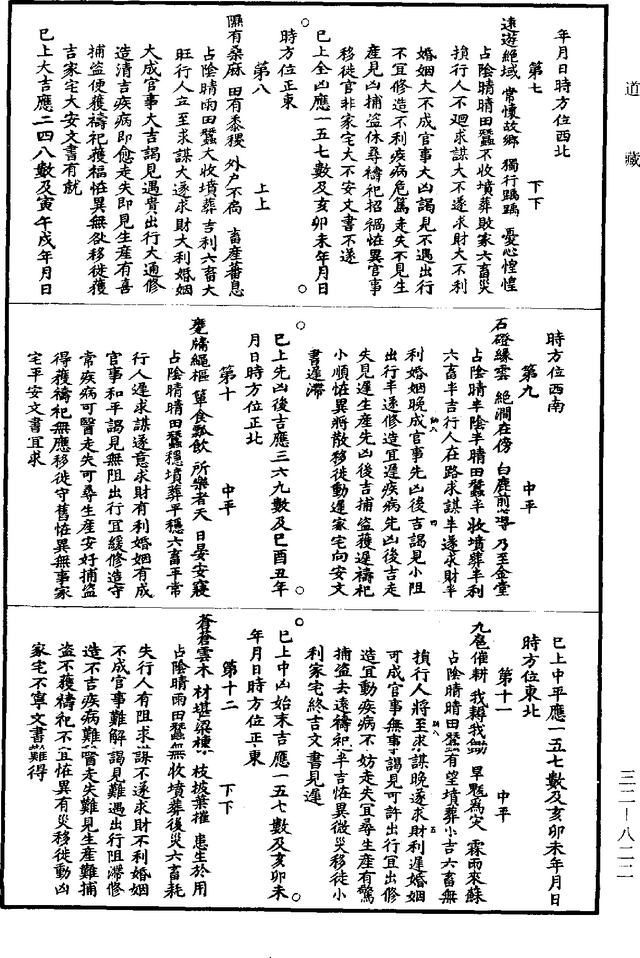 道藏
年月日時方位西北
第七　下下
遠遊絕域　常懷故鄉　獨行踽踽　憂心惶惶
占陰晴晴田蠶不收墳葬敗家六畜災
損行人不廻求謀大不遂求財大不利
婚姻大不成官事大凶謁見不遇出行
不宜修造不利疾病危篤走失不見生
產見凶捕盜休尋禱祀招禍怪異官事
移徙官非家宅大不安文書不遂
已上全凶應一五七數及亥卯未年月日
時方位正東
第八　上上
隰有桑麻　田有黍稷　外户不扃　畜產蕃息
占陰晴雨田蠶大收墳葬吉利六畜大
旺行人立至求謀大遂求財大利婚姻
大成官事大吉謁見遇貴出行大通修
造清吉疾病即愈走失即見生產有喜
捕盜便獲禱祀獲福怪異無欲移徙獲
吉家宅大安文書有就
已上大吉應二四八數及寅午戌年月日
時方位西南
第九　中平
石磴緣雲　絕澗在傍　白鹿前導　乃至金堂
占陰晴半陰半晴田蠶半收墳葬半利
六畜半吉行人在路求謀半遂求財半
利婚姻晚成官事先凶後吉謁見小阻
出行半遂修造宜遲疾病先凶後吉走
失見遲生產先凶後吉捕盜獲遲禱祀
小順怪異將散移徙動遲家宅向安文
書遲滯
已上先凶後吉應三六九數及巳酉丑年
月日時方位正北
第十　中平
甕牖繩樞　簞食瓢飲　所樂者天　日晏安寢
占陰晴晴田蠶穩墳葬平穩六畜平常
行人遲求謀遂意求財有利婚姻有成
官事和平謁見無阻出行宜緩修造守
常疾病可醫走失可尋生產安好捕盜
得獲禱祀無應移徙守舊怪異無事家
宅平安文書宜求
已上中平應一五七數及亥卯未年月日
時方位東北
第十一　中平
九扈催耕　我耨我鋤　旱魃為災　霖雨來蘇
占陰晴晴田蠶有望墳葬小吉六畜無
損行人將至求謀晚遂求財利遲婚姻
可成官事無事謁見可許出行宜出修
造宜動疾病不妨走失宜尋生產有驚
捕盜去遠禱祀半吉怪異微災移徙小
利家宅終吉文書見遲
已上中凶始末吉應一五七數及亥卯未
年月日時方位正東
第十二　下下
蒼蒼雲木　材堪梁棟　枝披葉摧　患生於用
占陰晴雨田蠶無收墳葬後災六畜耗
失行人有阻求謀不遂求財不利婚姻
不成官事難解謁見難遇出行阻滯修
造不吉疾病難醫走失難見生產難捕
盜不獲禱祀不宜怪異有災移徙動凶
家宅不寧文書難得
三二—八二二